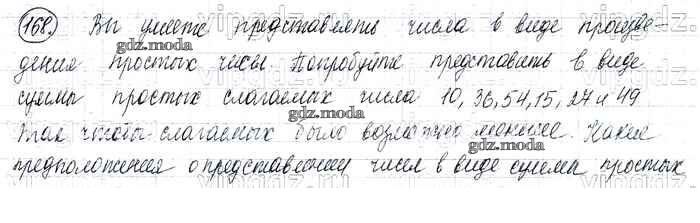 168. Вы умеете представлять числа в виде произве-
дения простых чисел. Попробуйте представить в виде
суммы простых слагаемых числа 10, 36, 54, 15, 27 и 49
так чтобы слагаемых было возможно меньше. Какие
предположения о представлении чисел в виде суммы простых
gdz.moda
gdz.moda
gdz.moda
gdz.moda
gdz.moda